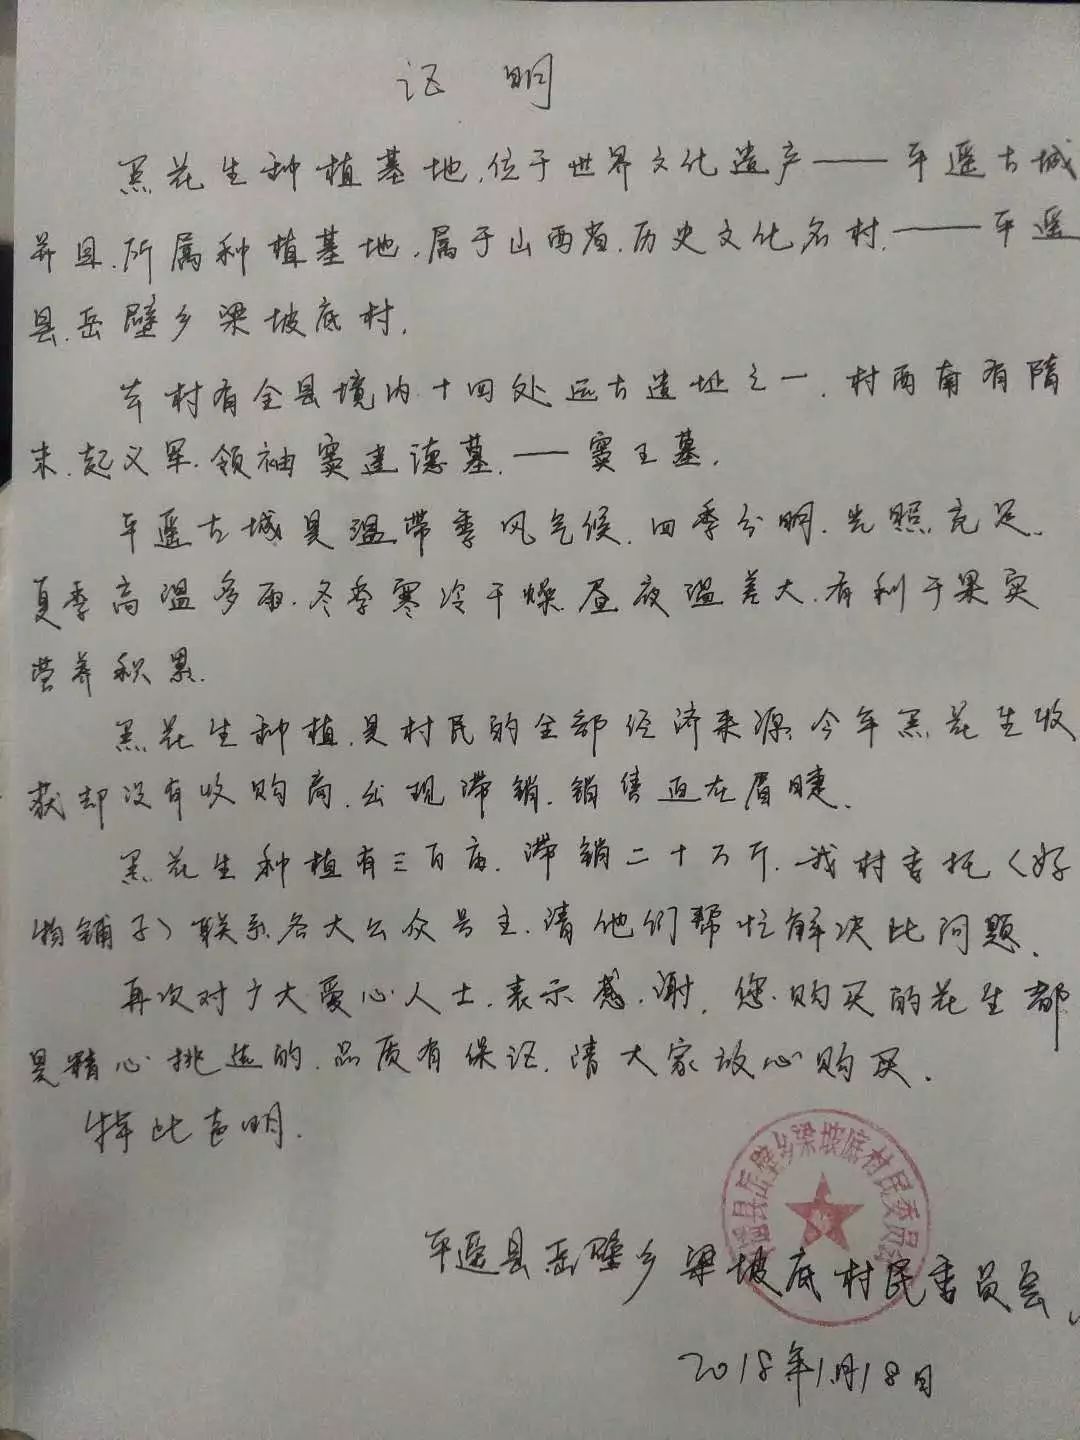 证 明
黑花生种植基地,位于世界文化遗产——平遥古城
并且.所属种植基地,属于山西省.历史文化名村.——平遥
县.岳壁乡梁坡底村.
本村有全县境内十四处远古遗址之一.村西南有隋
末.起义军.领袖窦建德墓.——窦王墓.
平遥古城是温带季风气候.四季分明.光照充足.
夏季高温多雨.冬季寒冷干燥.昼夜温差大.有利于果实
营养积累.
黑花生种植.是村民的全部经济来源.今年黑花生收
获却没有收购商.出现滞销.销售迫在眉睫.
黑花生种植有三百亩.滞销二十万斤.我村委托〈好
物铺子〉联系各大公众号主.请他们帮忙解决此问题.
再次对广大爱心人士.表示感.谢.您.购买的花生都
是精心挑选的.品质有保证.请大家放心购买.
特此声明.
遥县岳壁乡梁坡底村民委员会
平遥县岳壁乡梁坡底村民委员会.
2018年1月18日